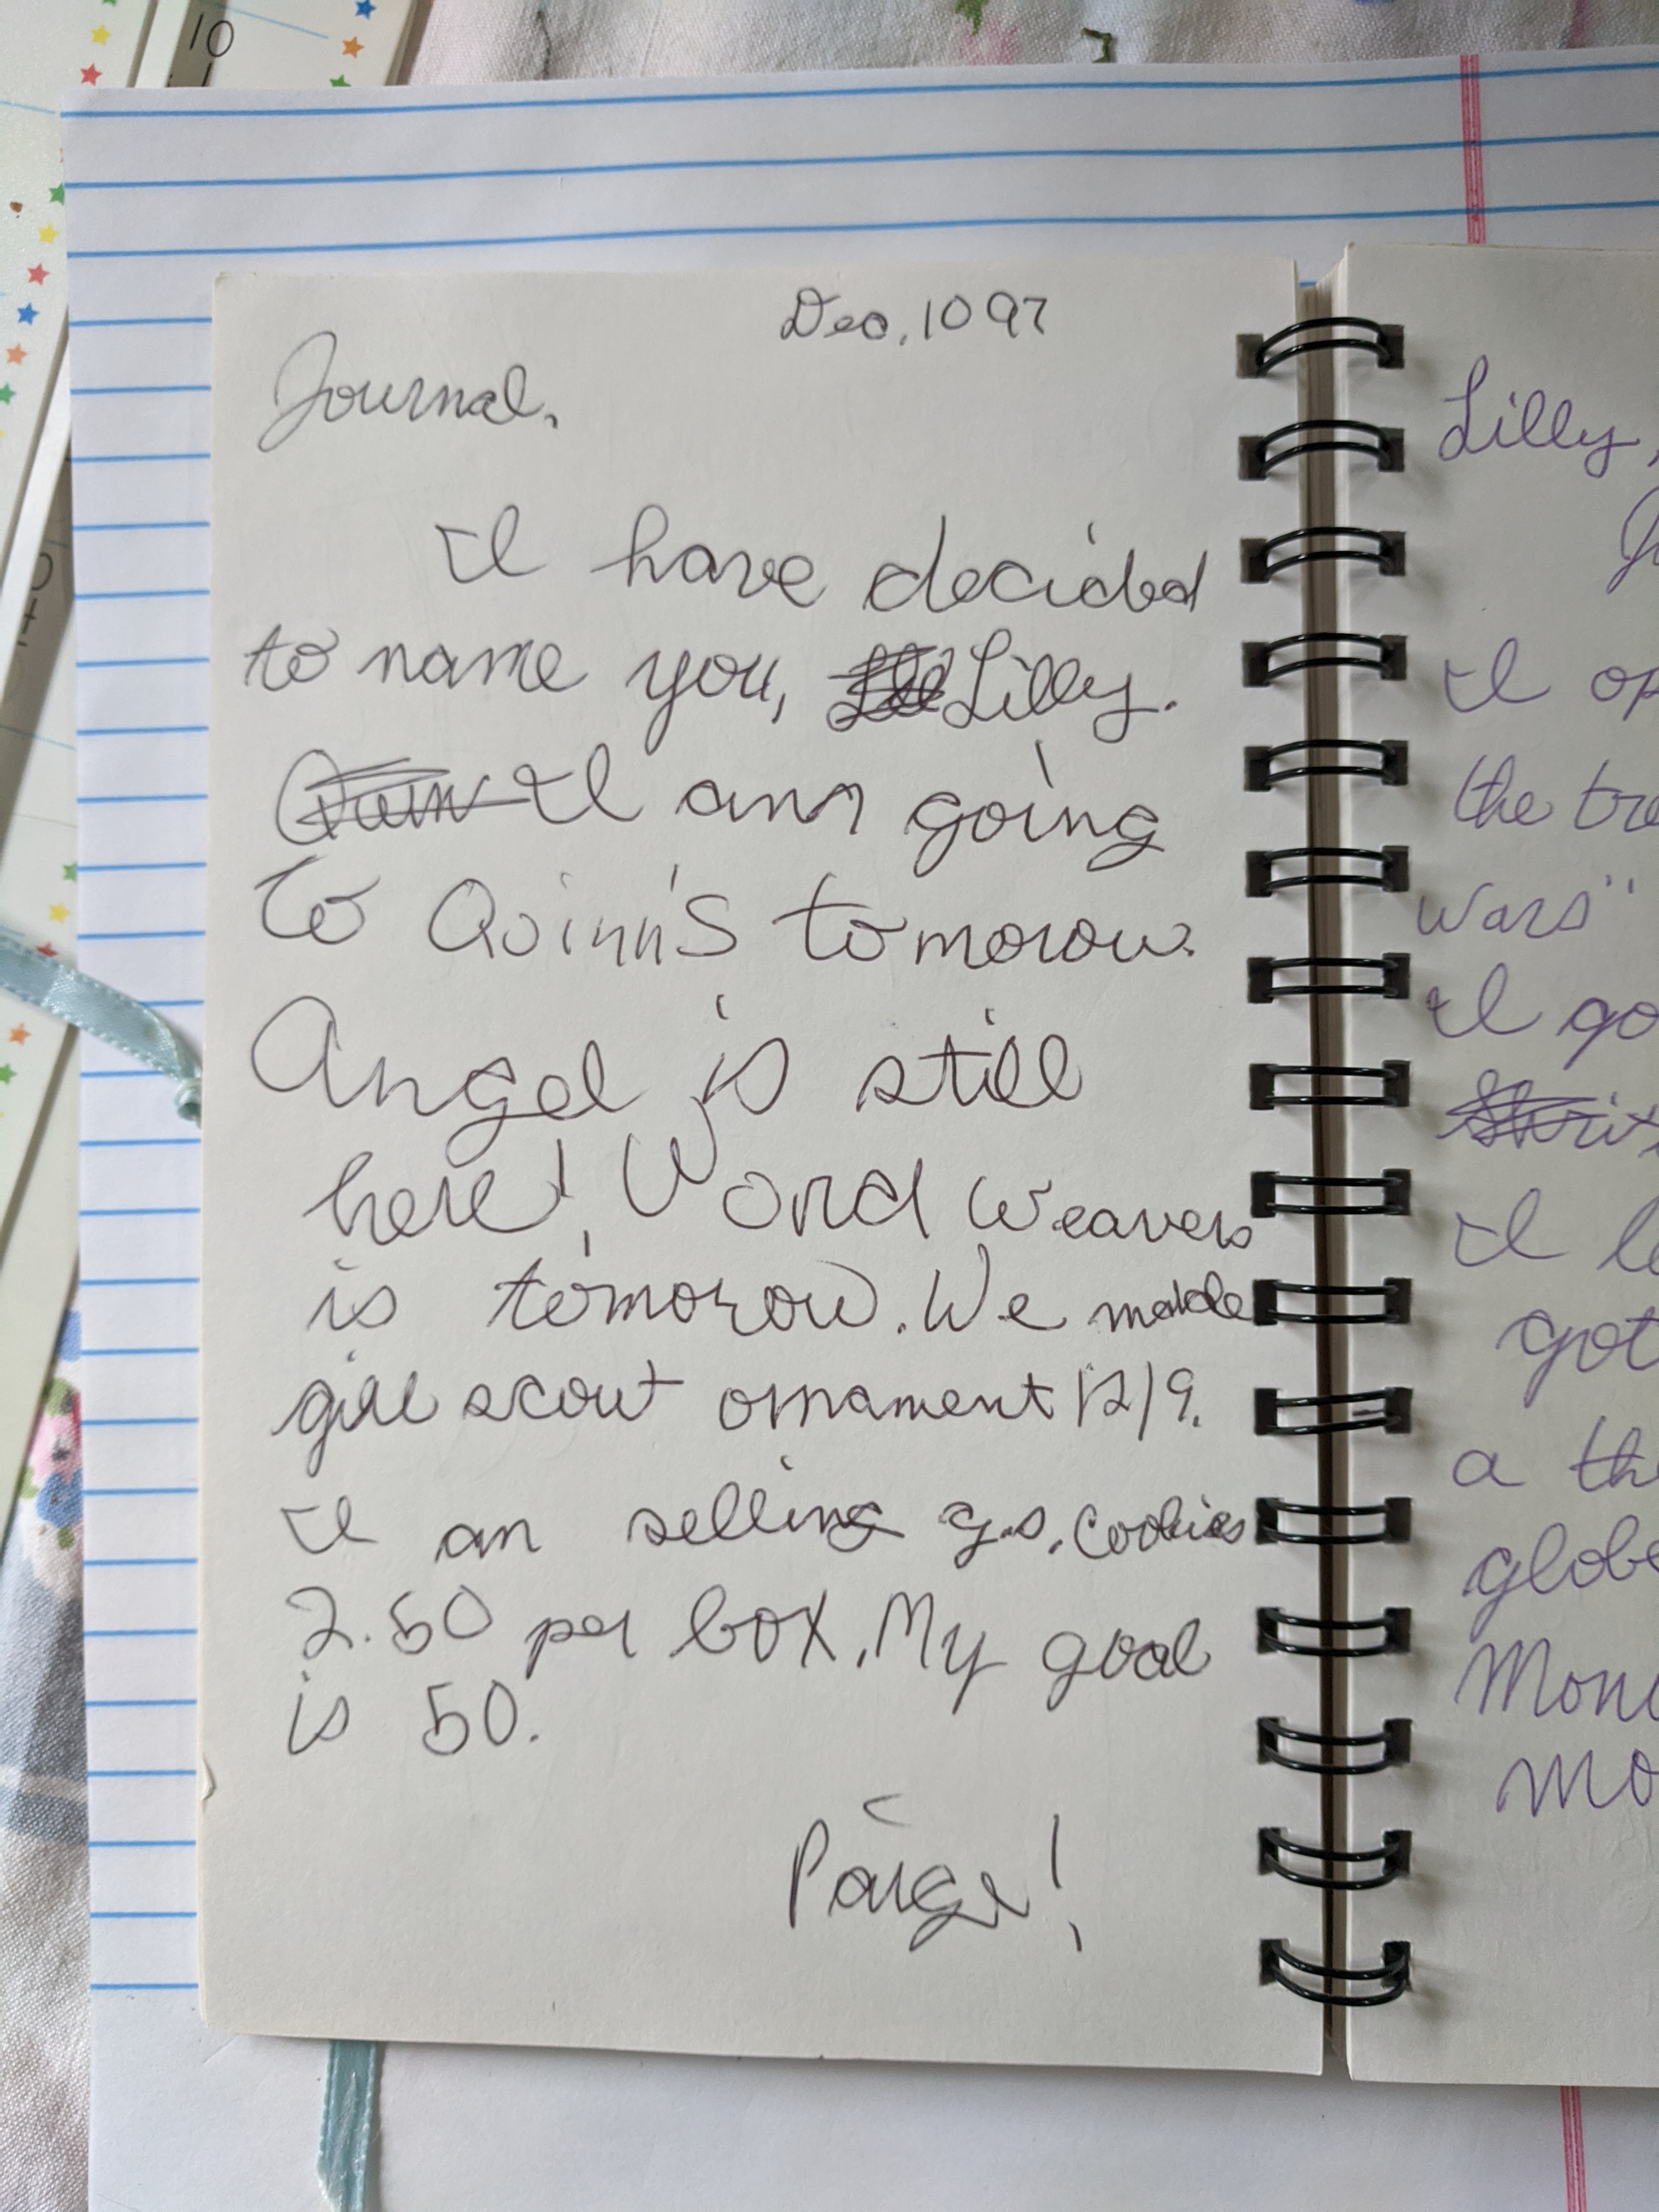 10
Dec. 10 97
Journal,
I have decided
to name you, Lilly.
I am going
to Quinn's tomorow.
Angel is still
here! Word Weavers
is tomorow. We made
girl scout ornament 12/9.
I an selling g.s. cookies
2.50 per box. My goal
is 50.
Paige!
Lilly,
I
the
wars"
I
I
got
a